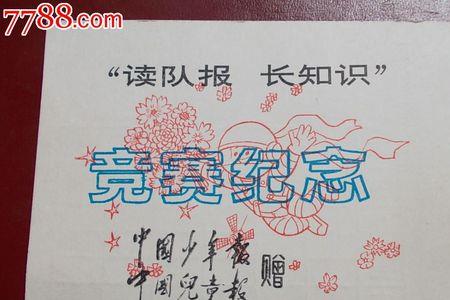 7788.com
“读队报 长知识”
竞赛纪念
中国少年报
中国儿童报
赠